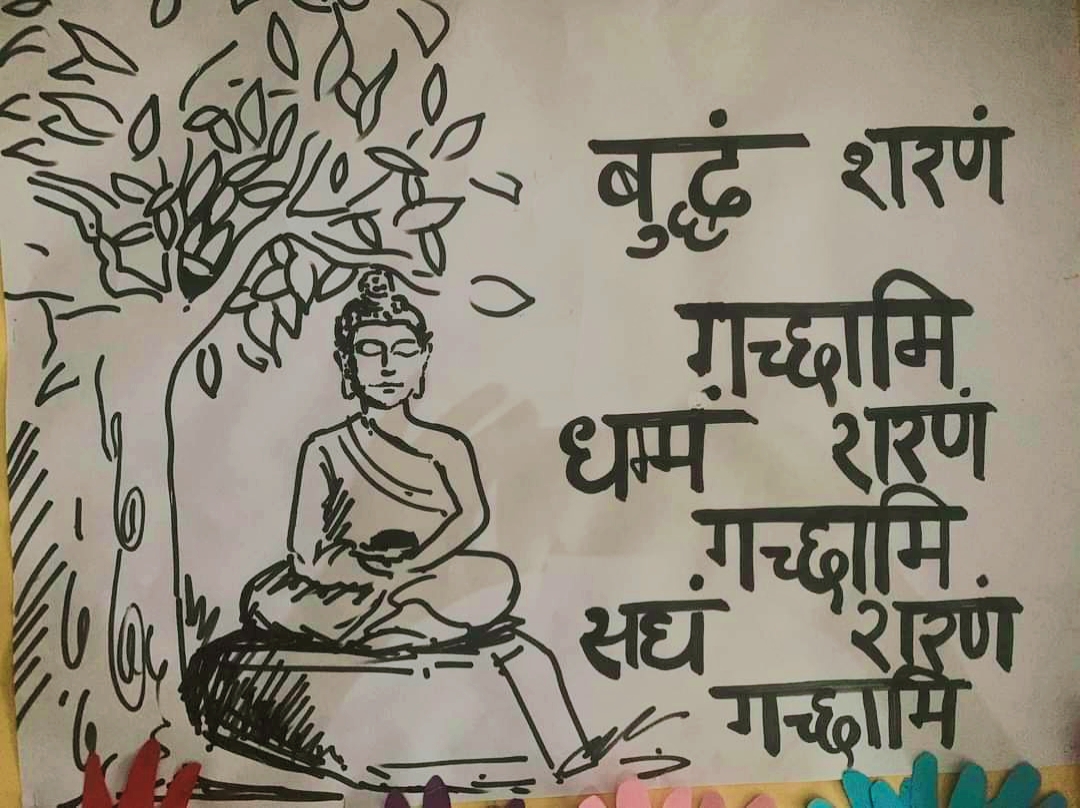 बुद्धं शरणं
गच्छामि
धम्मं शरणं
गच्छामि
सघं शरणं
गच्छामि